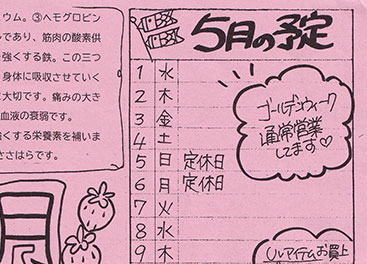 ウム。③ヘモグロビン
であり、筋肉の酸素供
強くする鉄。この三つ
身体に吸収させていく
大切です。痛みの大き
血液の衰弱です。
強くする栄養素を補いま
ささはらです。
5月の予定
1 水
2 木
3 金
4 土
5 日 定休日
6 月 定休日
7 火
8 水
9 木
ゴールデンウィーク
通常営業
してます♡
ルアイテムお買上